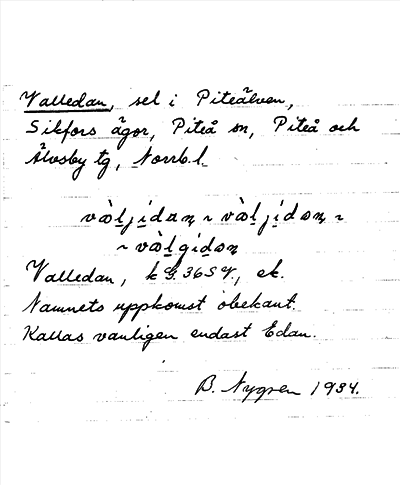 Valledan, sel i Piteälven,
Sikfors ägor, Piteå sn, Piteå och
Älvsby tg, Norrb.l.
vàḻji̱daṉ ~ vàḻji̱dəṉ ~
~ vàḻgi̱dəṉ
Valledan, k G. 36 S V, ek.
Namnets uppkomst obekant.
Kallas vanligen endast Edan.
B. Nygren 1934.